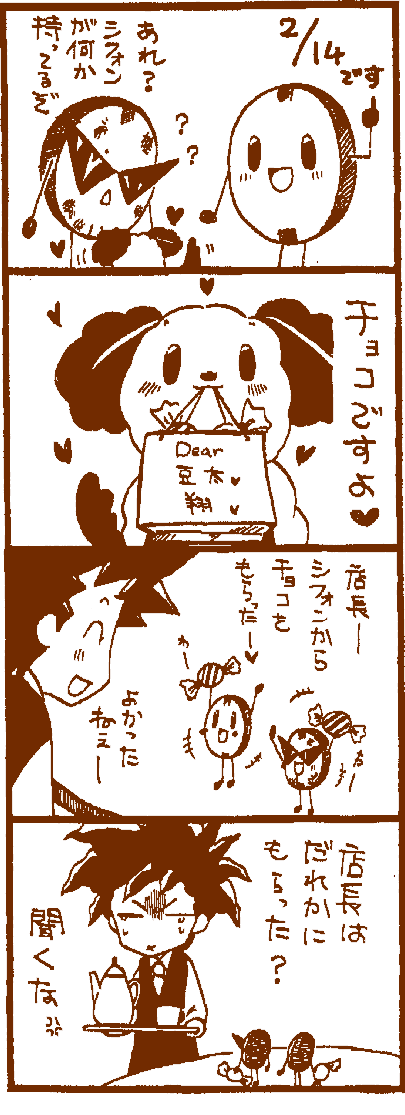 2/14
です
あれ？
シフォン
が何か
持ってるぞ
？
？
チョコですよ♥
Dear
豆太
翔
店長ー
シフォンから
チョコを
もらったー♥
わー
わー
よかった
ねぇー
店長は
だれかに
もらった？
聞くな…